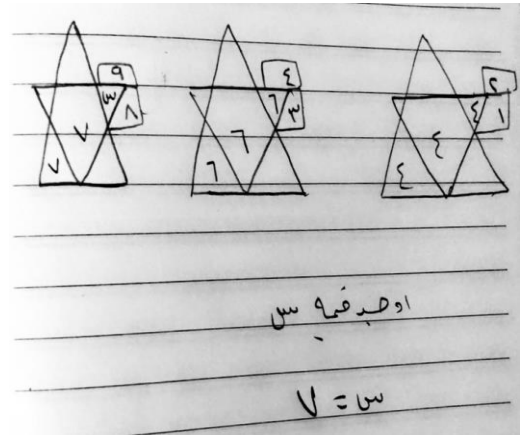 ٩
٣ ٨
٧
٧
٤
٦ ٣
٦
٦
٢
٤ ١
٤
٤
اوجد قيمة س
س = ٧